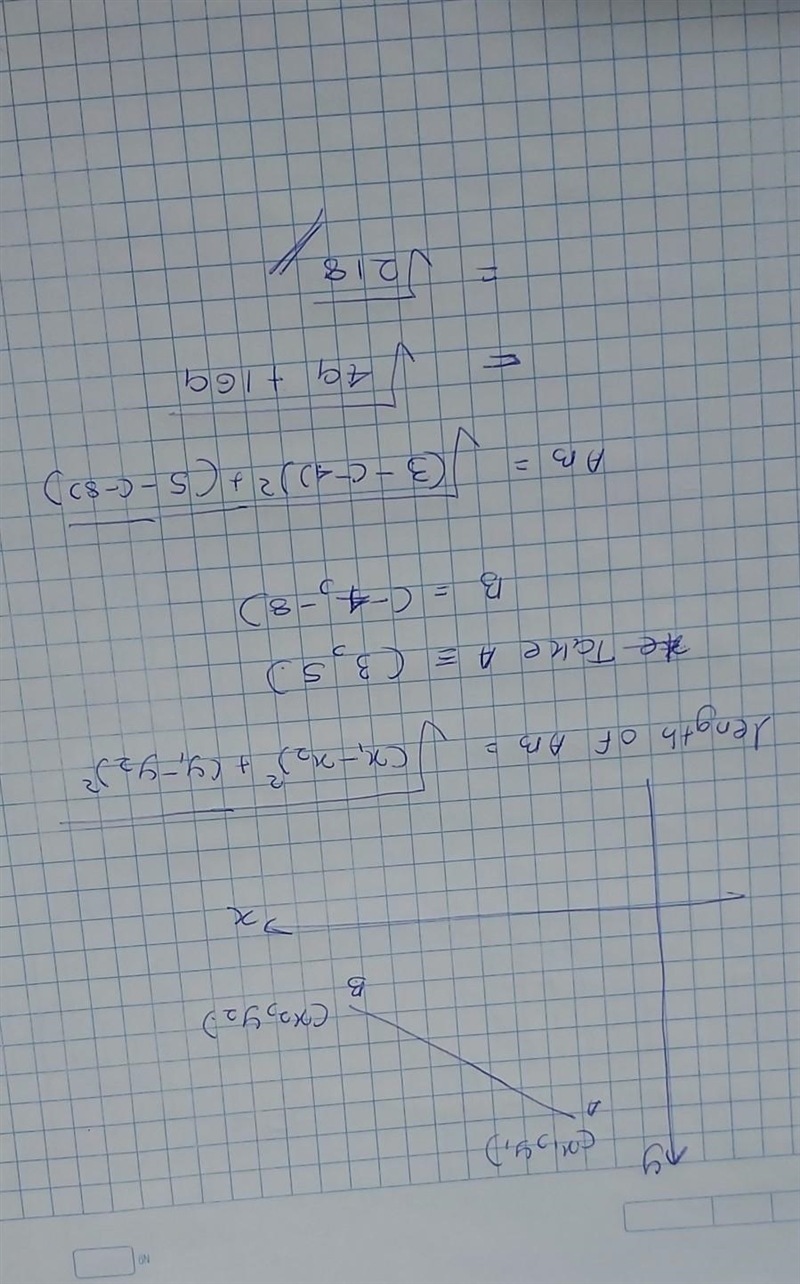 NO
y
(x₁, y₁)
A
(x₂, y₂)
B
x
length of AB = √(x₁ - x₂)² + (y₁ - y₂)²
Take A = (3, 5)
B = (-4, -8)
AB = √(3 - (-4))2 + (5 - (-8))
= √49 + 169
= √218